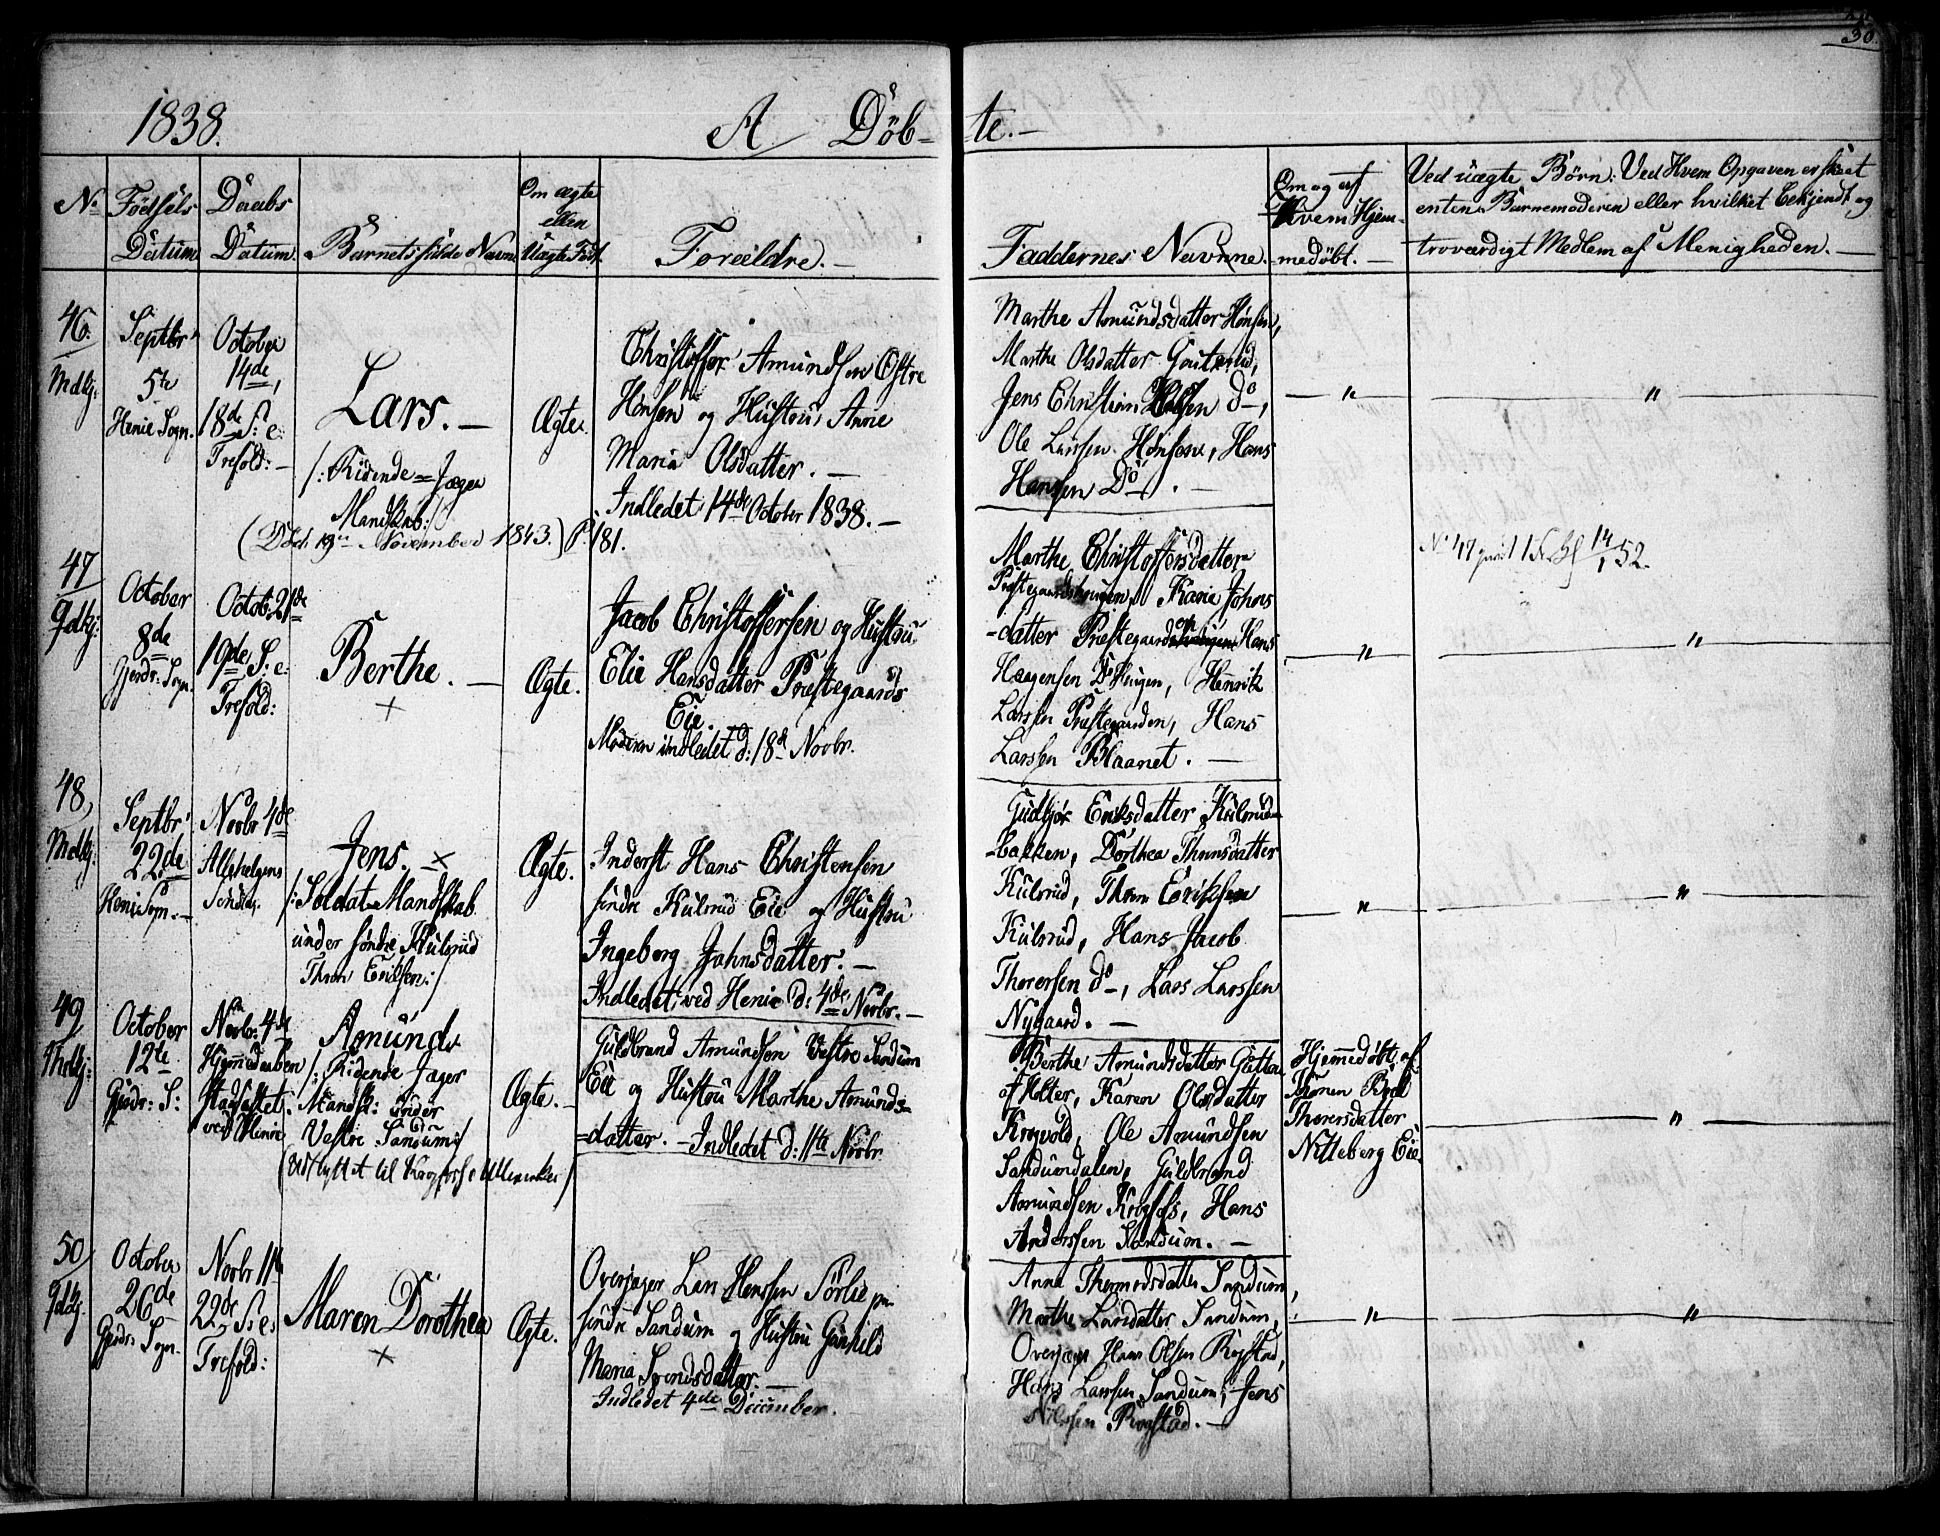 30.
1838.
A Döb-
te. –
No
Födsels
Datum
Daabs
Datum
Barnets fulde Navn
Om ægte
eller
Uægte Fød.
Forældre. –
Faddernes Navnne. –
Om og af
Hvem Hjem-
medøbt. –
Ved uægte Börn: Ved Hvem Opgaven er skeet
enten Barnemoderen eller hvilket bekjendt og
troværdigt Medlem af Menigheden. –
46.
Mdkj:
Septbr
5te
Henie Sogn.
October
14de,
18de S: e:
Trefold: –
Lars. –
/: Ridende = Jæger
Mandskab :/
(Död 19de November 1843.) P. 181.
Ægte.
Christoffer Amundsen Østre
Hønsen og Hustru Anne
Maria Olsdatter. –
Indledet 14de October 1838. –
Marthe Amundsdatter Hønsen,
Marthe Olsdatter Gouterud,
Jens Christian Do –,
Ole Larssen Hønsen, Hans
Hansen Do. –
– " –
"
47
Qdkj:
October
8de
Gjerdr: Sogn.
Octob: 21de
19de S: e:
Trefold:
Berthe. –
+
Ægte.
Jacob Christoffersen og Hustru
Elie Hansdatter Præstegaards
Eie.
Moderen indledet d: 18de Novbr.
Marthe Christoffersdatter
Præstegaardshaugen, Karie Johns
-datter Præstegaards Hans
Haagensen Do Haugen, Henrik
Larssen Præstegaarden, Hans
Larssen Blaanet. –
"
No 47 14/1 52.
"
48,
Mdkj:
Septbr
22de
Henie Sogn. –
Novbr 4de
Allehelgens
Söndag.
Jens. x
/: Soldat-Mandskab
under söndre Kulsrud
Thron Eriksen :/
Ægte.
Inderst Hans Christensen
söndre Kulsrud Eie og Hustru
Ingeborg Johnsdatter. –
Indledet ved Henie d: 4de Novbr. –
Gudbjör Eriksdatter Kulsrud-
-bakken, Dorthea Thronsdatter
Kulsrud, Thron Eriksen
Kulsrud, Hans Jacob
Thorersen do –, Lars Larssen
Nygaard. –
"
"
49
Mdkj:
October
12te
Gjerdr: S:
Novbr: 4de
Hjemmedaaben
stadfæstet
ved Henie
Amund.
/: Ridende Jæger
Mandsk: under
Vestre Sandum :/
(Udflyttet til Kragfos i Ullensaker)
Ægte. –
Guldbrand Amundsen Vestre Sandum
Eie og Hustru Marthe Amunds-
=datter. – Indledet d: 11te Novbr
Berthe Amundsdatter
af Holter, Karen Olsdatter
Krogvold, Ole Amundsen
Sandumdalen, Guldbrand
Amundsen Kragfos, Hans
Anderssen Sandum. –
Hjemmedøbt af
Thorersdatter
Nitteberg Eie.
"
50
Qdkj.
October
26de
Gjerdr: Sogn.
Novbr 11te
22de S: e:
Trefold:
Maren Dorothea
x
Ægte.
Overjæger Lars Hanssen Sörlie paa
söndre Sandum og Hustru Gunhild
Maria Svendsdatter. –
Indledet 4de December.
Anne Thormodsdatter Sandum,
Marthe Larsdatter Sandum,
Overjæger Hans Olsen Rogstad,
Hans Larssen Sandum, Jens
Nilssen Rogstad. –
"
"